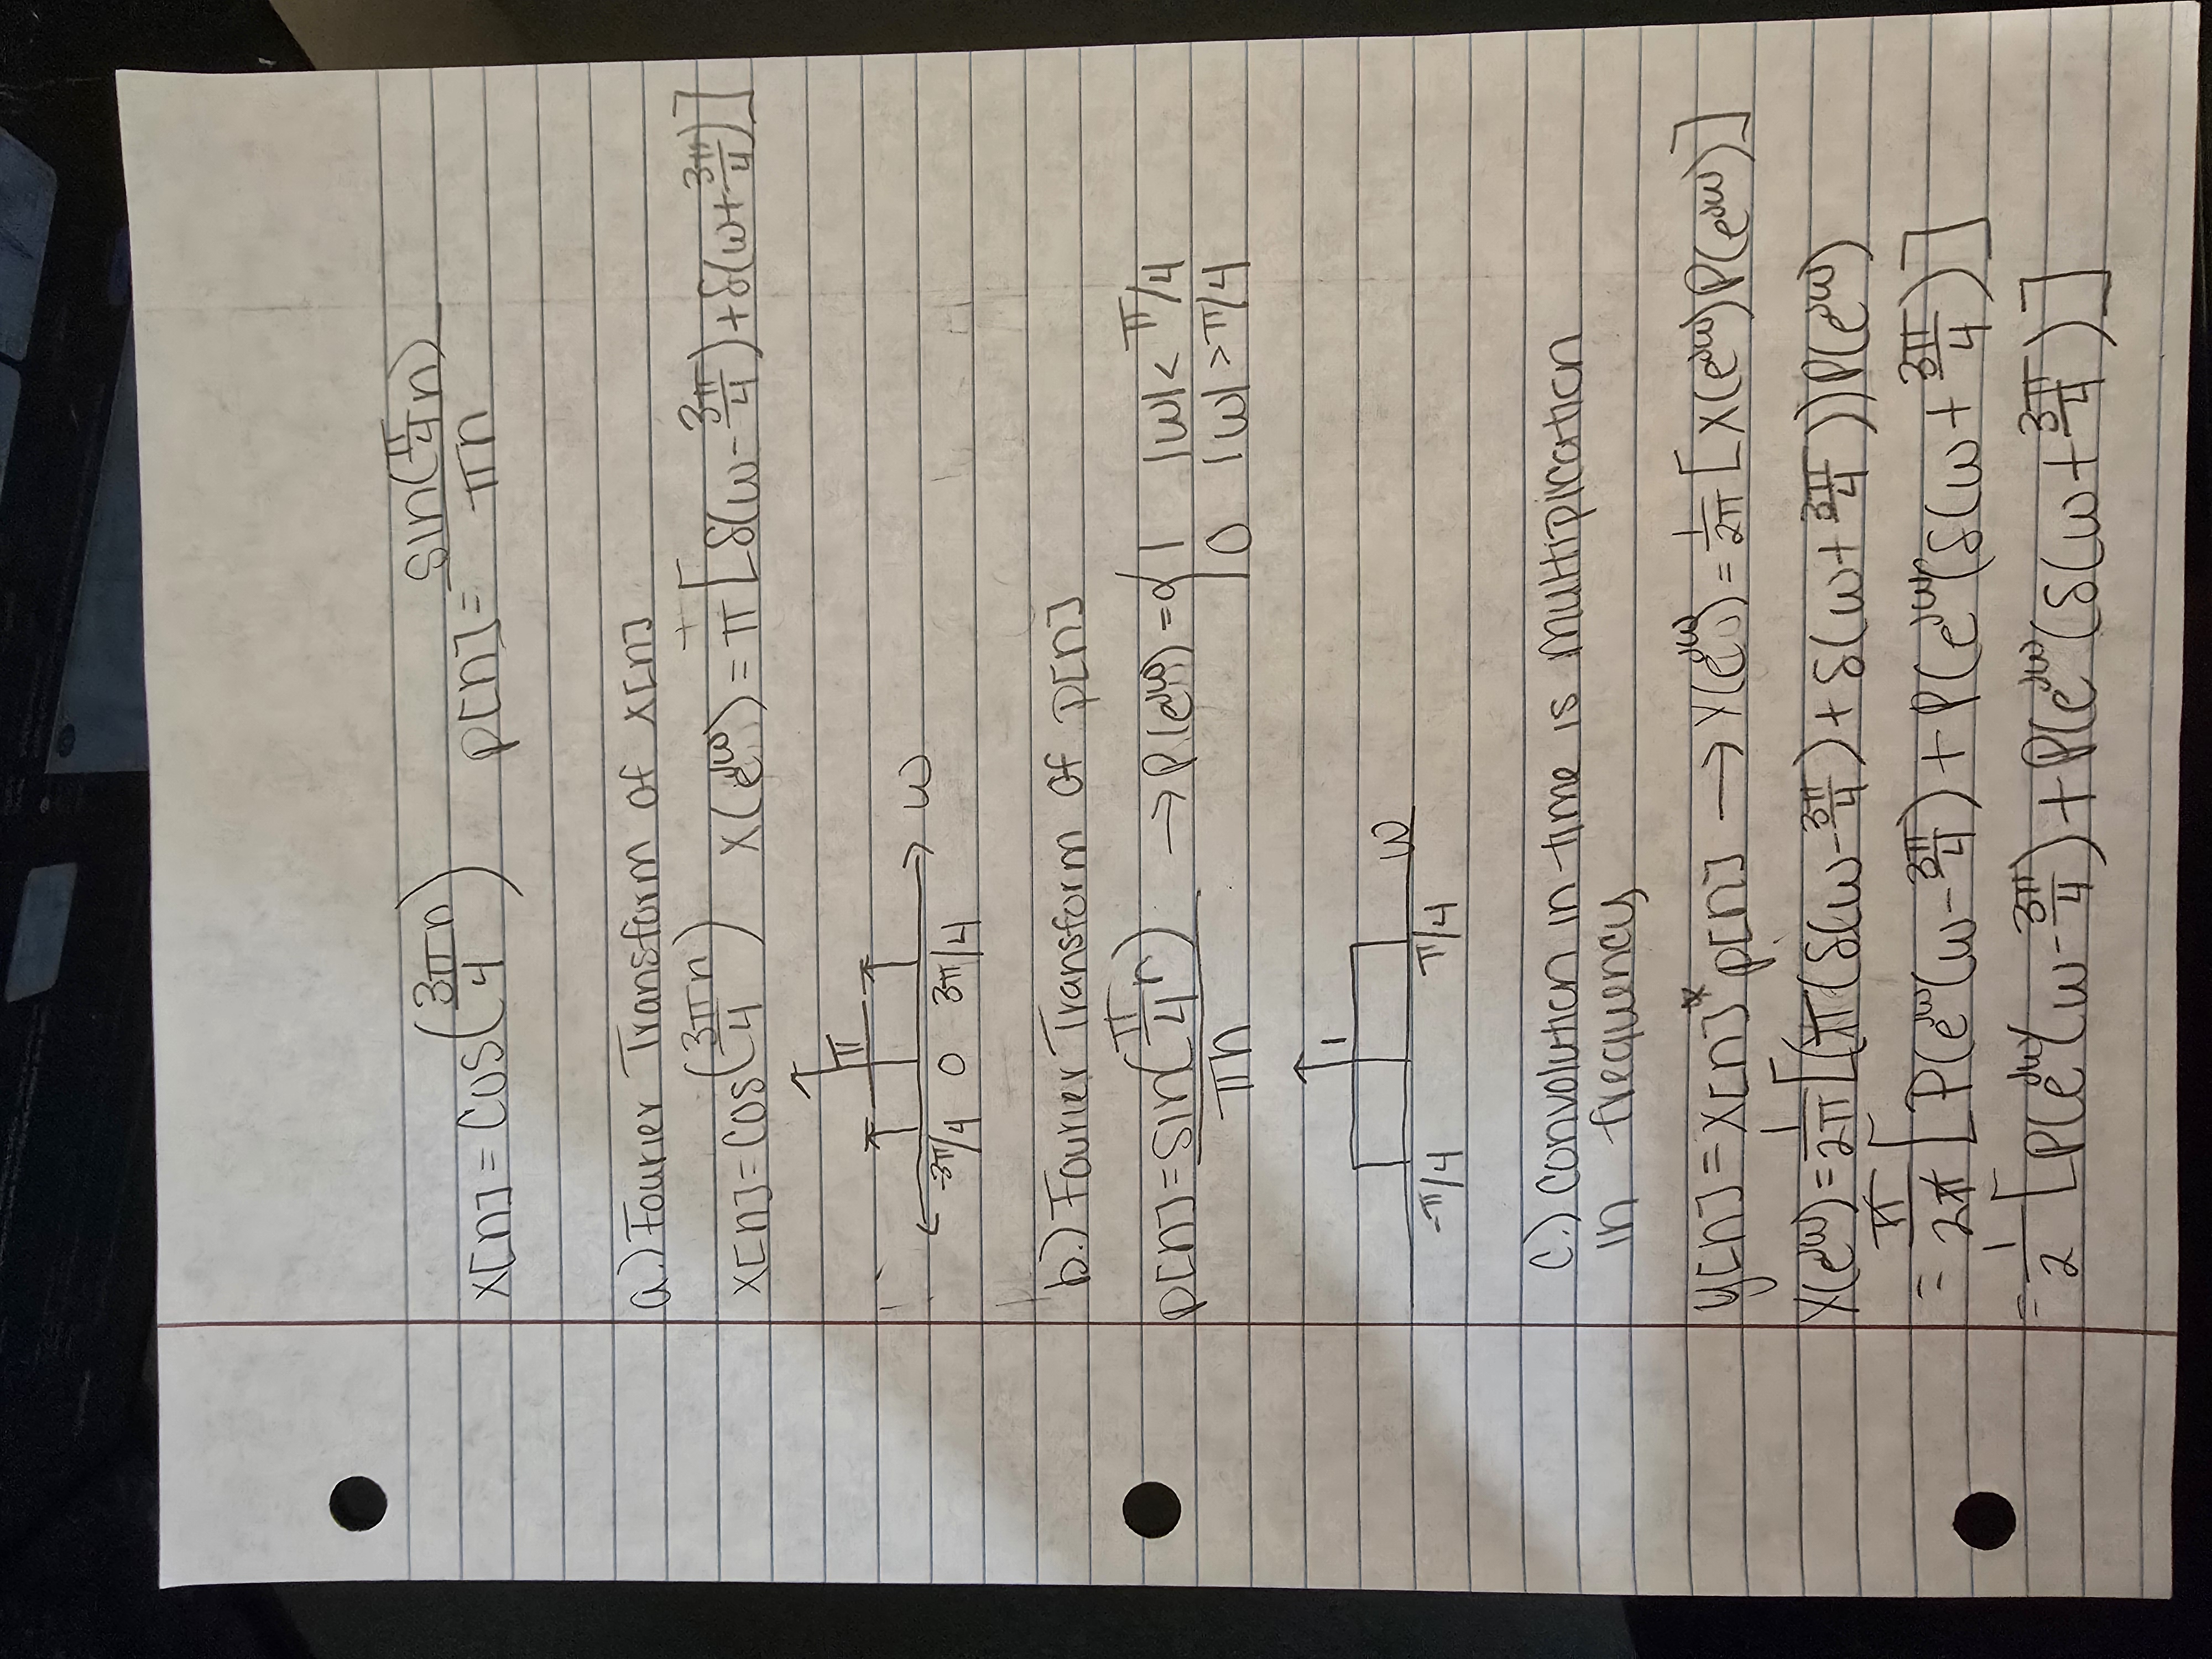 x[n] = cos(3πn/4) p[n] = sin(π/4 n)/πn
a.) Fourier Transform of x[n]
x[n] = cos(3πn/4) X(e^jω) = π[δ(ω - 3π/4) + δ(ω + 3π/4)]
π
ω
-3π/4 0 3π/4
b.) Fourier Transform of p[n]
p[n] = sin(π/4 n)/πn → P(e^jω) = { 1 |ω| < π/4
0 |ω| > π/4
1
ω
-π/4 π/4
c.) Convolution in time is multiplication
in frequency
y[n] = x[n] * p[n] → Y(e^jω) = 1/2π [X(e^jω) P(e^jω)]
X(e^jω) = 1/2π [(π(δ(ω - 3π/4) + δ(ω + 3π/4)) P(e^jω)
= π/2π [P(e^jω (ω - 3π/4) + P(e^jω (δ(ω + 3π/4)]
= 1/2 [P(e^jω (ω - 3π/4) + P(e^jω (δ(ω + 3π/4)]